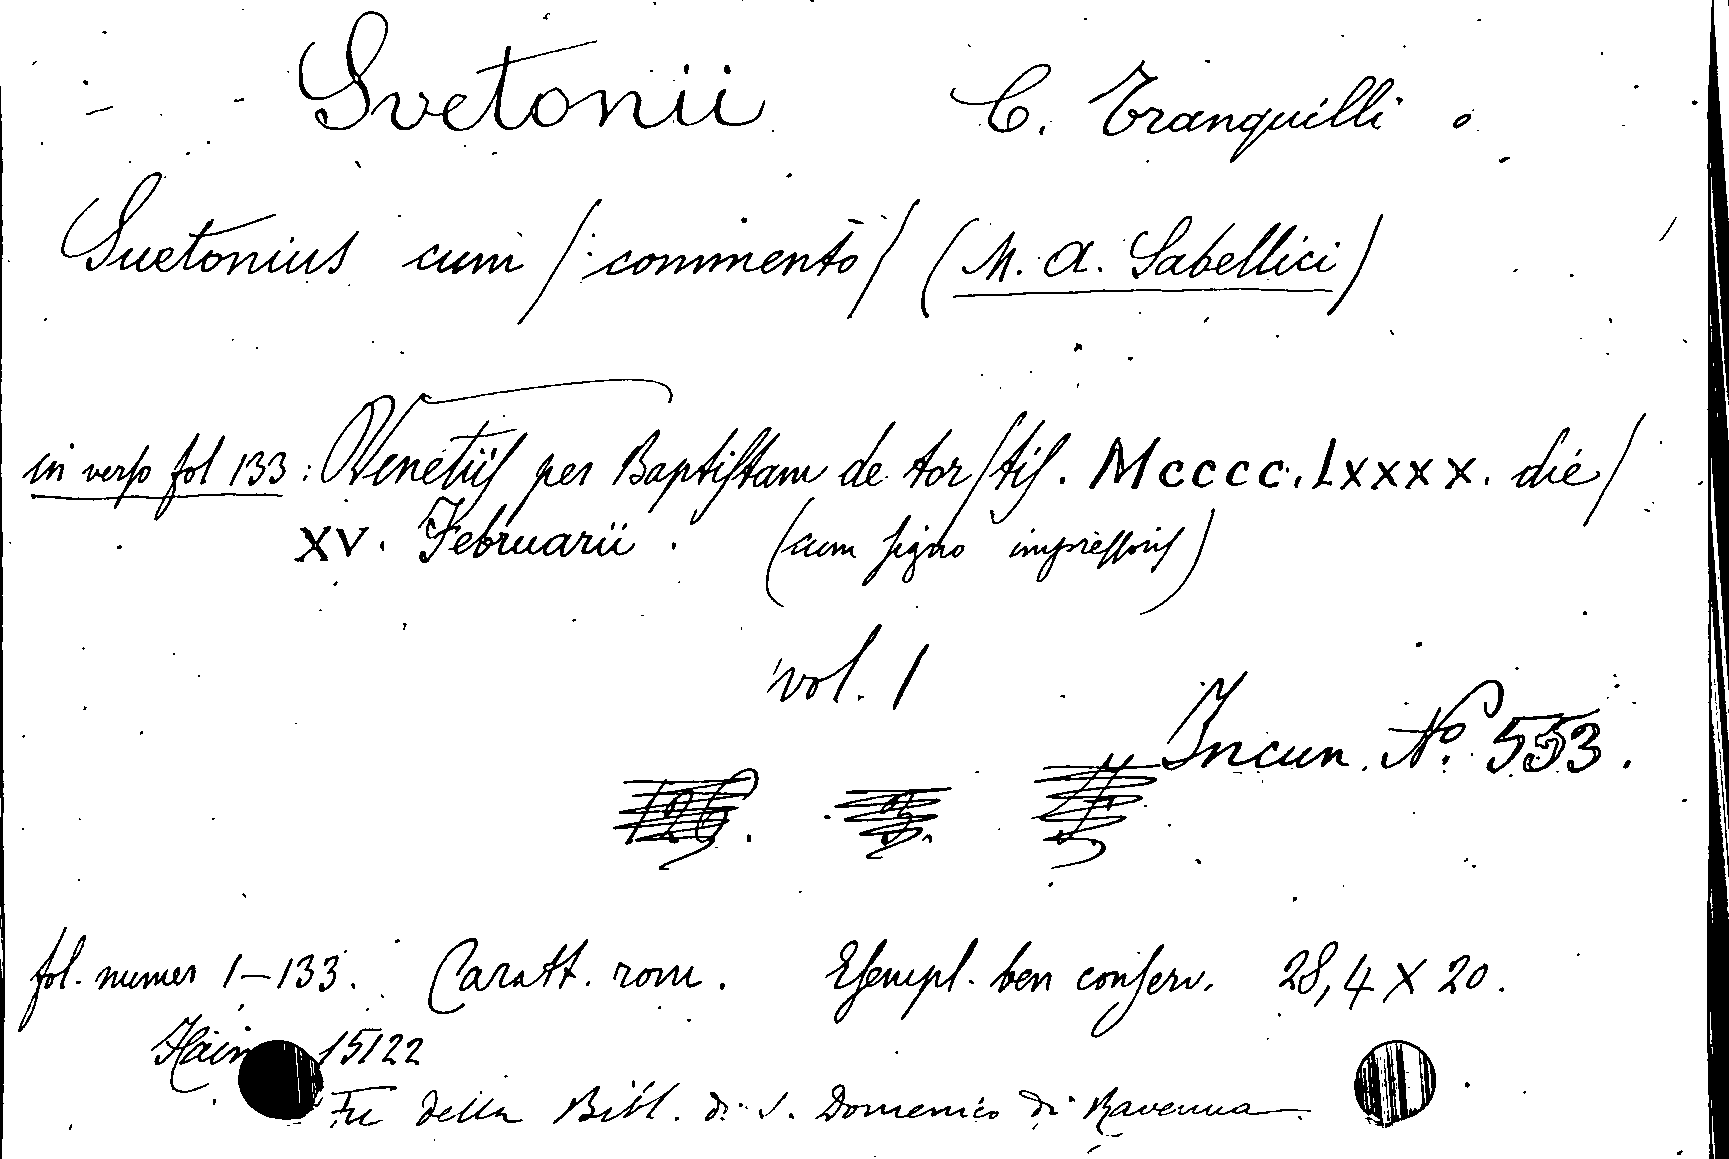 Svetonii C. Tranquilli
Suetonius cum / commento / (M. A. Sabellici)
in verso fol 133: Venetiis per Baptistam de tor/tis. Mcccc.lxxxx. die /
XV. Februarii. (cum signo impressoris)
vol. 1
Incun. Nº. 553.
fol. numer 1–133. Caratt. rom. Esempl. ben conserv. 28,4 X 20.
Hain 15122
Fu della Bibl. di S. Domenico di Ravenna